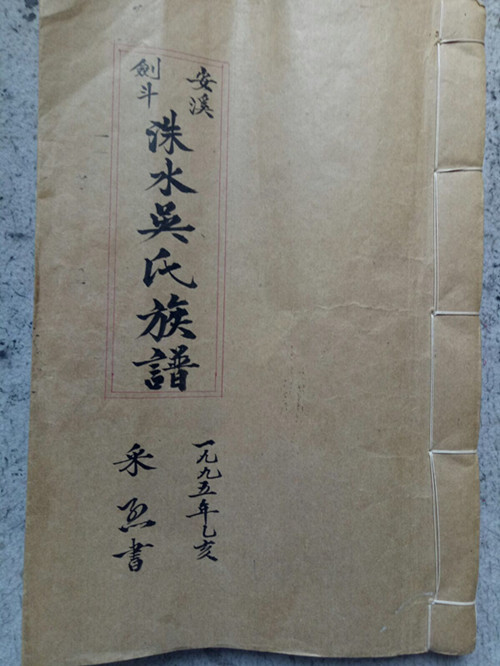 安溪
劍斗
洙水吳氏族譜
一九九五年乙亥
采烈書